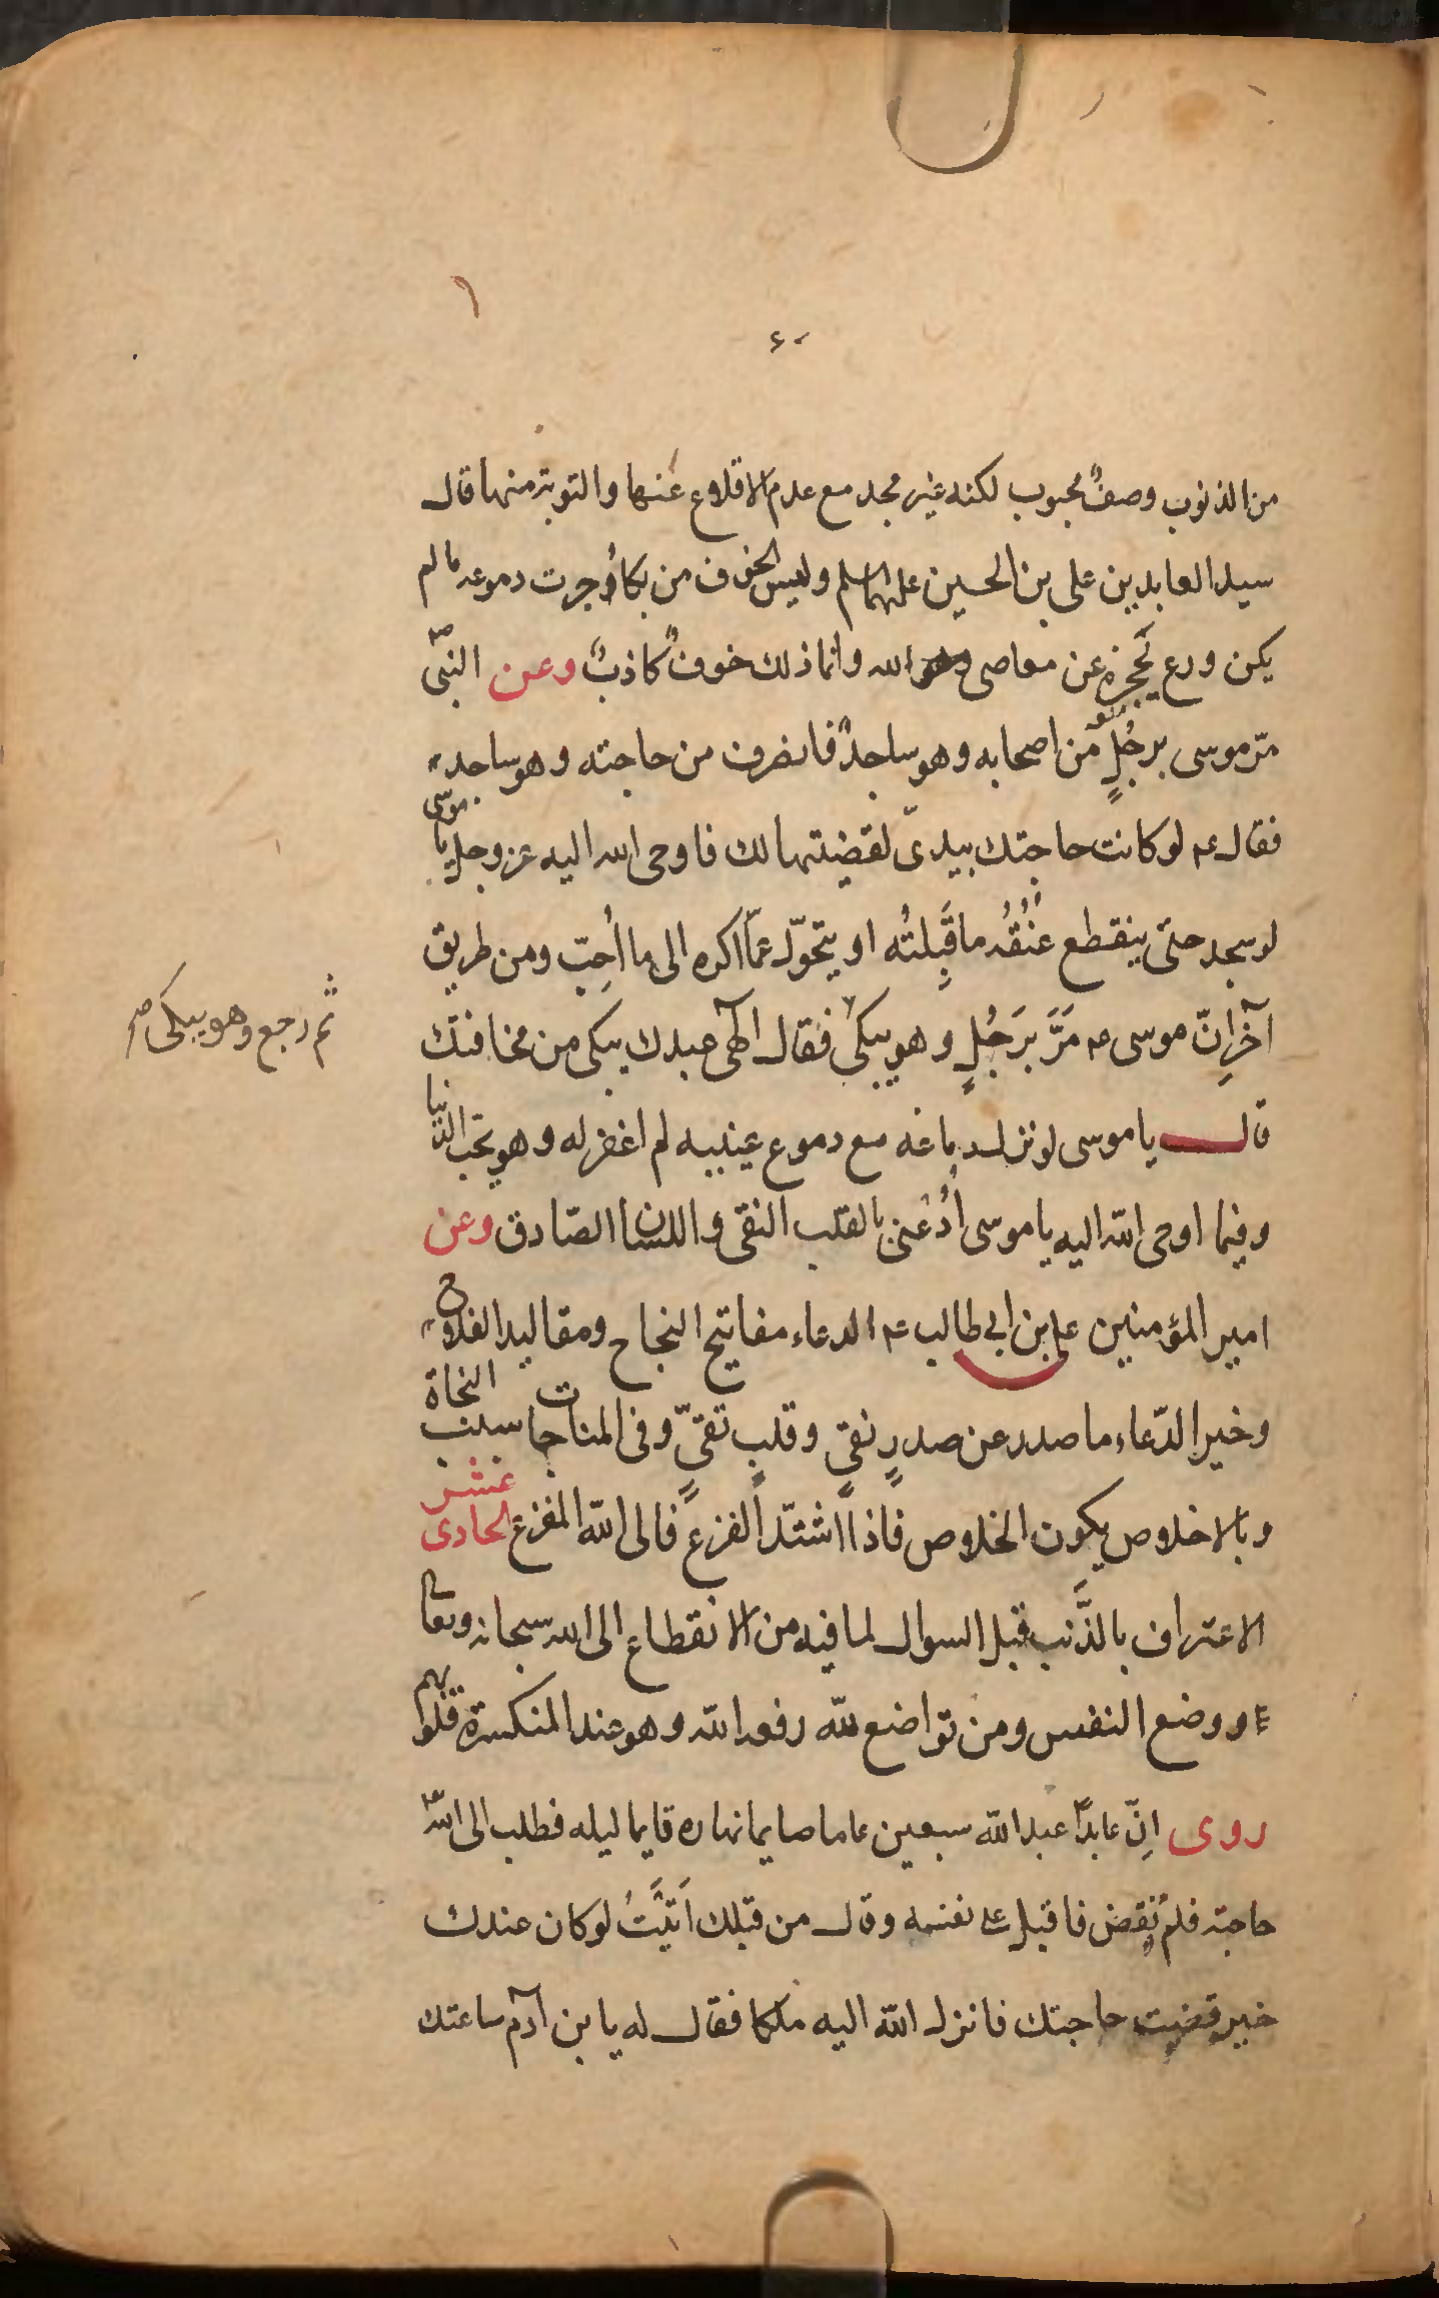 ٤٠
من الذنوب وصفٌ محبوب لكنه غير مجد مع عدم الاقلاع عنها والتوبة منها قال
سيد العابدين على بن الحسين عليهما السلم وليس الخوف من بكا وُجرت دموعه ما لم
يكن ورع يَحجزه عن معاصى الله وانما ذلك خوفٌ كاذبٌ وعن النبّى ص
مرّ موسى برجُلٍ من اصحابه وهو ساجدٌ فانصرف من حاجته وهو ساجد
فقال ع لو كانت حاجتك بيدىّ لقضيتها لك فاوحى الله اليه عز وجل يا موسى
لو سجد حتى ينقطع عُنُقُه ما قَبِلتُه او يتحوّل عمّا اكره الى ما اُحِبّ ومن طريق
آخر اِنّ موسى ع مَرَّ برَجُلٍ وهو يبكى فقال الٓهى عبدك يبكى من مخافتك
ثم رجع وهو يبكى صح
قال يا موسى لو نزل دماغه مع دموع عينيه لم اغفر له وهو يحّب الدّنيا
وفيما اوحى الله اليه يا موسى اُدْعُنى بالقلب النقى واللسان الصّادق وعن
امير المؤمنين على بن ابى طالب ع الدعاء مفاتيح النجاح ومقاليد الفلاح
وخير الدّعاء ما صدر عن صدرٍ نقىٍ وقلبٍ تقىٍّ وفى المناجات سبب النجاة
وبالاخلاص يكون الخلاص فاذا اشتدّ الفزع فالى الله المفزع الحادى عشر
الاعتراف بالذَّنب قبل السوال لما فيه من الانقطاع الى الله سبحانه وتعالى
ووضع النفس ومن تواضع لله رفعه الله وهو عند المنكسرة قلوبهم
روى اِنّ عابدًا عبد الله سبعين عاما صايما نهاره قايما ليله فطلب الى الله
حاجته فلم تُقض فاقبل على نفسه وقال من قبلك اَتَيْتُ لو كان عندك
خير قضيت حاجتك فانزل الله اليه ملكا فقال له يابن آدم ساعتك